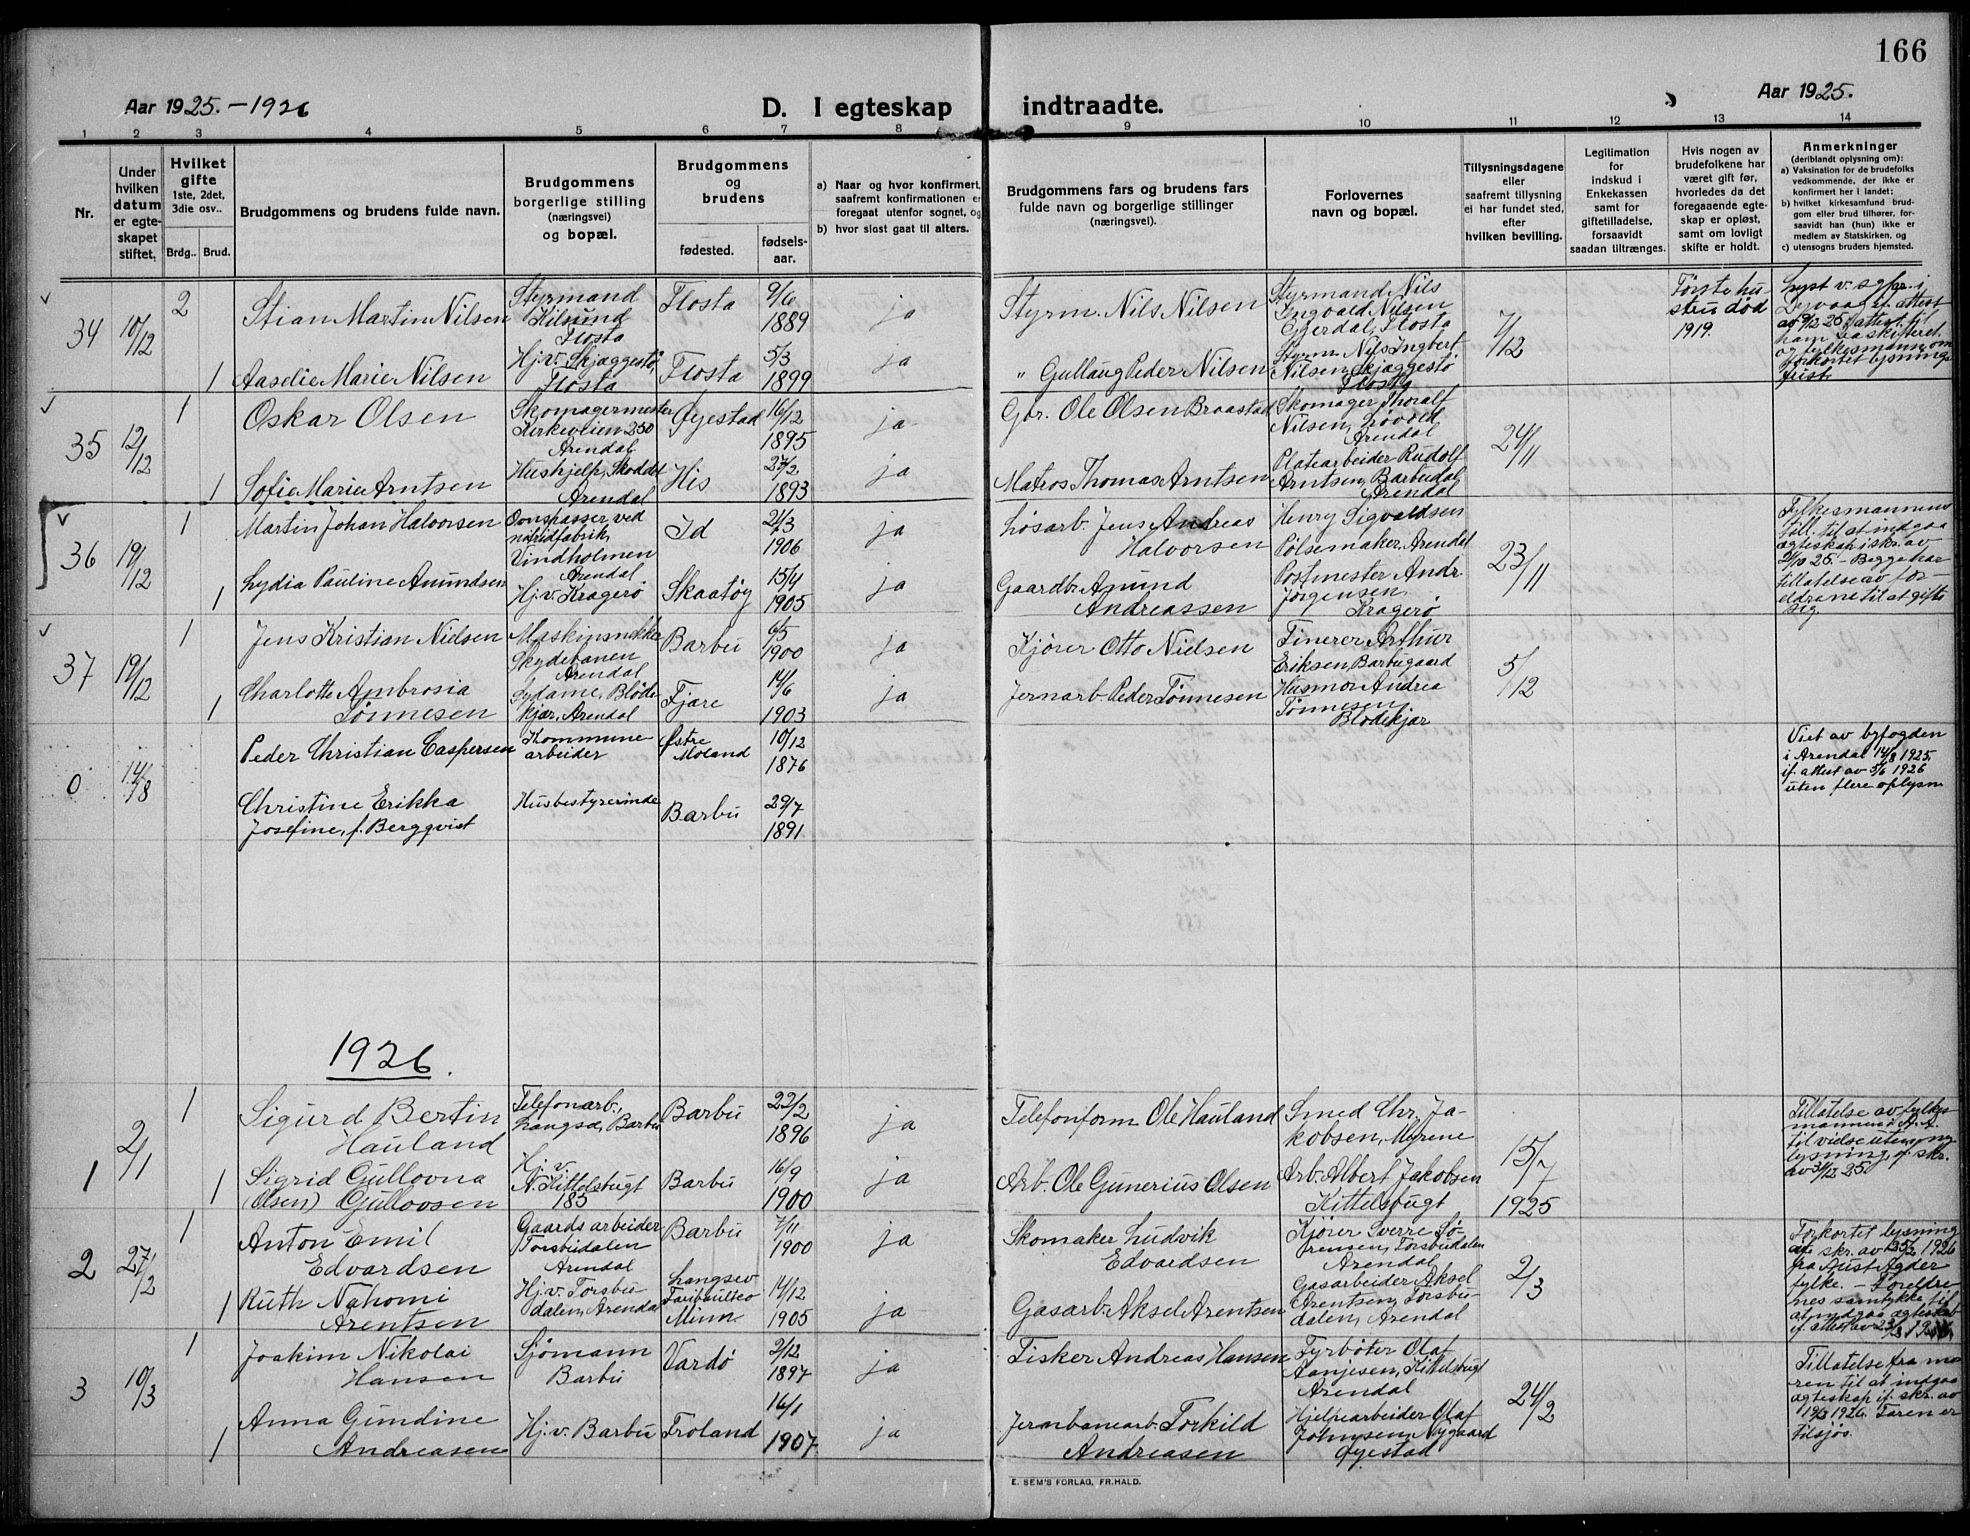 166
Aar 1925. - 1926
D. I egteskap indtraadte.
Aar 1925.
1 2 3 4 5 6 7 8 9 10 11 12 13 14
Nr.
Under hvilken datum er egteskapet stiftet.
Hvilket gifte
1ste, 2det, 3die osv..
Brdg.. Brud.
Brudgommens og brudens fulde navn.
Brudgommens borgerlige stilling
(næringsvei)
og bopæl.
Brudgommens og brudens
fødested. fødselsaar.
a) Naar og hvor konfirmert, saafremt konfirmationen er foregaat utenfor sognet, og
b) hvor sidst gaat til alters.
Brudgommens fars og brudens fars
fulde navn og borgerlige stillinger
(næringsvei).
Forlovernes
navn og bopæl.
Tillysningsdagene
eller
saafremt tillysning
ei har fundet sted,
efter
hvilken bevilling.
Legitimation
for
indskud i
Enkekassen
samt for
giftetilladelse,
forsaavidt
saadan tiltrænges.
Hvis nogen av
brudefolkene har
været gift før,
hvorledes da det
foregaaende egteskap er opløst,
samt om lovligt
skifte er holdt.
Anmerkninger
(deriblandt oplysning om):
a) Vaksination for de brudefolks vedkommende, der ikke er konfirmert her i landet;
b) hvilket kirkesamfund brudgom eller brud tilhører, forsaavidt han (hun) ikke er medlem av Statskirken, og
c) utensogns bruders hjemsted.
34 10/12 2 Stian Martin Nilsen
Styrmand
Kilsund
Flosta
Flosta 9/6 1889 ja
Styrm. Nils Nilsen
Styrmand Nils
Ingvald Nilsen
Gjerdal, Flosta
7/12
Første hustru død
1919.
1 Aaselie Marie Nilsen
Hj. v. Skjæggestø,
Flosta
Flosta 5/3 1899 ja
" Gullaug Peder Nilsen
Styrm. Nils Ingbert
Nilsen, Skjæggestø
Flosta
35 12/12 1 Oskar Olsen
Skomagermester
Kirkeveien 250
Arendal
Øyestad 16/12 1895 ja
Gbr. Ole Olsen Braastad
Skomager Thoralf
Nilsen, Løvold
Arendal
24/11
1 Sofie Marie Arntsen
Hushjelp, Skoddet
Arendal
His 27/2 1893 ja
Matros Thomas Arntsen
Platearbeider Rudolf
Arntsen, Barbudal
Arendal
36 19/12 1 Martin Johan Halvorsen
Ovnspasser ved
nitridfabrik,
Vindholmen
Arendal
Id 21/3 1906 ja
Løsarb. Jens Andreas
Halvorsen
Henry Sigvaldsen
Pølsemaker, Arendal
23/11
Fylkesmannens
till. til at indgaa
egteskap i skr. av
21/10 25. - Begge har
tillatelse av forældrene til at gifte
sig.
1 Lydia Pauline Amundsen
Hj. v. Kragerø
Skaatøy 15/4 1905 ja
Gaardbr. Amund
Andreassen
Postmester Andr.
Jørgensen
Kragerø
37 19/12 1 Jens Kristian Nielsen
Maskinsnekker
Skydebanen
Arendal
Barbu 6/5 1900 ja
Kjører Otto Nielsen
Finerer Arthur
Eriksen, Barbugaard
5/12
1 Charlotte Ambrosia
Tønnesen
Sydame, Blødekjær, Arendal
Fjære 14/6 1903 ja
Jernarb. Peder Tønnesen
Husmor Andrea
Tønnesen,
Blødekjær
0 14/8 Peder Christian Caspersen
Kommunearbeider
Østre
Moland
10/12 1876
Viet av byfogden
i Arendal 14/8 1925,
if. attest av 5/6 1926
uten flere oplysn.
Christine Erikka
Josefine, f. Bergqvist
Husbestyrerinde
Barbu 29/7 1891
1926.
1 2/1 1 Sigurd Bertin
Hauland
Telefonarb.
Langsæ, Barbu
Barbu 22/2 1896 ja
Telefonform Ole Hauland
Smed Chr. Jakobsen, Myrene
15/7 1925
Tillatelse av fylkesmannen i A. A.
til vielse uten ny
lysning if. skr.
av 31/12 25.
1 Sigrid Gullovna
(Olsen) Gullovsen
Hj. v.
N. Kittelsbugt
185
Barbu 16/9 1900 ja
Arb. Ole Gunerius Olsen
Arb. Albert Jakobsen
Kittelsbugt
2 27/2 1 Anton Emil
Edvardsen
Gaardsarbeider
Torsbudalen
Arendal
Barbu 7/11 1900 ja
Skomaker Ludvik
Edvardsen
Kjører Sverre Sørensen, Torsbudalen
Arendal
2/3
Forkortet lysning
skr. av 25/2 1926
fra Aust Agder
fylke. - Foreldrenes samtykke til
at indgaa egteskab
if. attest av
1 Ruth Nahomi
Arentsen
Hj. v. Torsbudalen, Arendal
Langsev
Faribaulteo
Minn.
14/12 1905 ja
Gasarb. Aksel Arentsen
Gasarbeider Aksel
Arentsen, Torsbudalen, Arendal
3 10/3 1 Joakim Nikolai
Hansen
Sjømann
Barbu
Vardø 2/12 1897 ja
Fisker Andreas Hansen
Fyrbøter Olaf
Aanjesen, Kittelsbugt
Arendal
24/2
Tillatelse fra moren til at indgaa
egteskap if. skr. av
1926. Faren er
tilsjøs.
1 Anna Gundine
Andreasen
Hj. v. Barbu
Froland 16/1 1907 ja
Jernbanearb. Torkild
Andreasen
Hjelpearbeider Olaf
Johnsen, Nygaard
Øyestad
E. SEM'S FORLAG, FR.HALD.